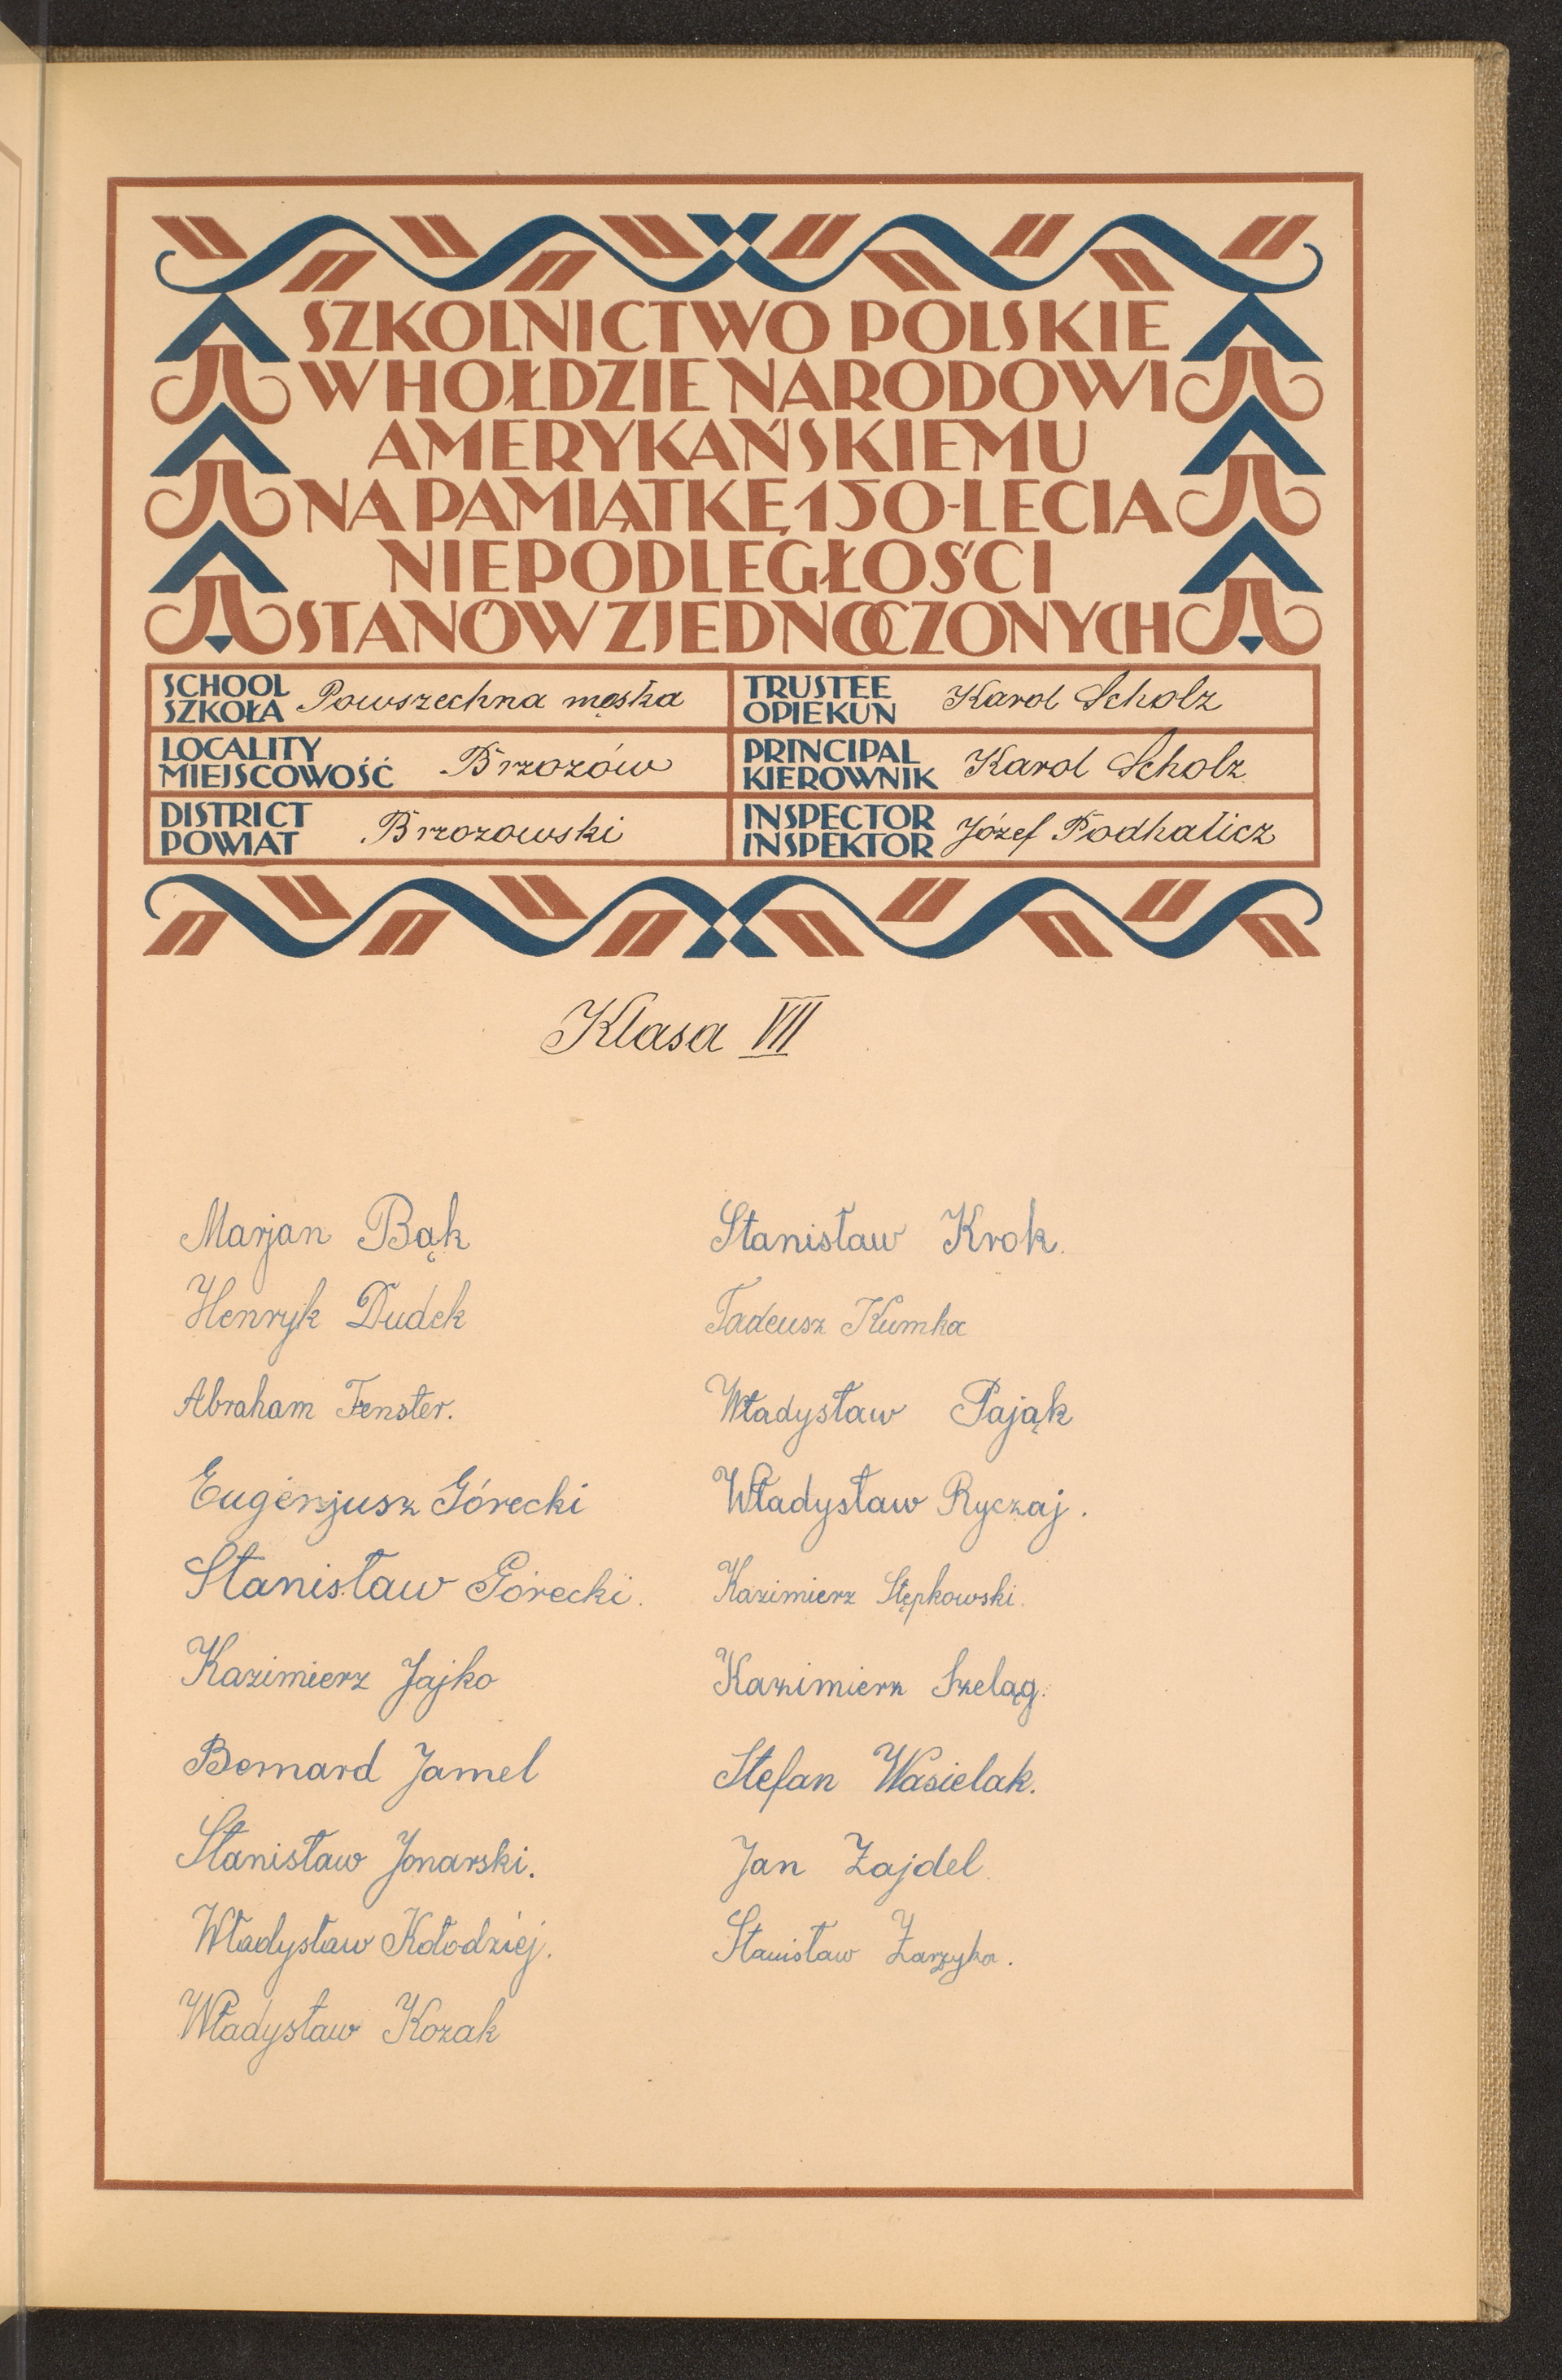 SZKOLNICTWO POLSKIE
W HOŁDZIE NARODOWI
AMERYKAŃSKIEMU
NA PAMIĄTKĘ 150-LECIA
NIEPODLEGŁOŚCI
STANÓW ZJEDNOCZONYCH
SCHOOL
SZKOŁA Powszechna męska
TRUSTEE
OPIEKUN Karol Scholz
LOCALITY
MIEJSCOWOŚĆ Brzozów
PRINCIPAL
KIEROWNIK Karol Scholz
DISTRICT
POWIAT Brzozowski
INSPECTOR
INSPEKTOR Józef Podhalicz
Klasa VII
Marjan Bąk
Henryk Dudek
Abraham Fenster.
Eugenjusz Górecki
Stanisław Górecki.
Kazimierz Jajko
Bernard Jamel
Stanisław Jonarski.
Władysław Kołodziej.
Władysław Kozak
Stanisław Krok.
Tadeusz Kumka
Władysław Pająk
Władysław Ryczaj.
Kazimierz Stępkowski.
Kazimierz Szeląg.
Stefan Wasielak.
Jan Zajdel.
Stanisław Zarzyka.